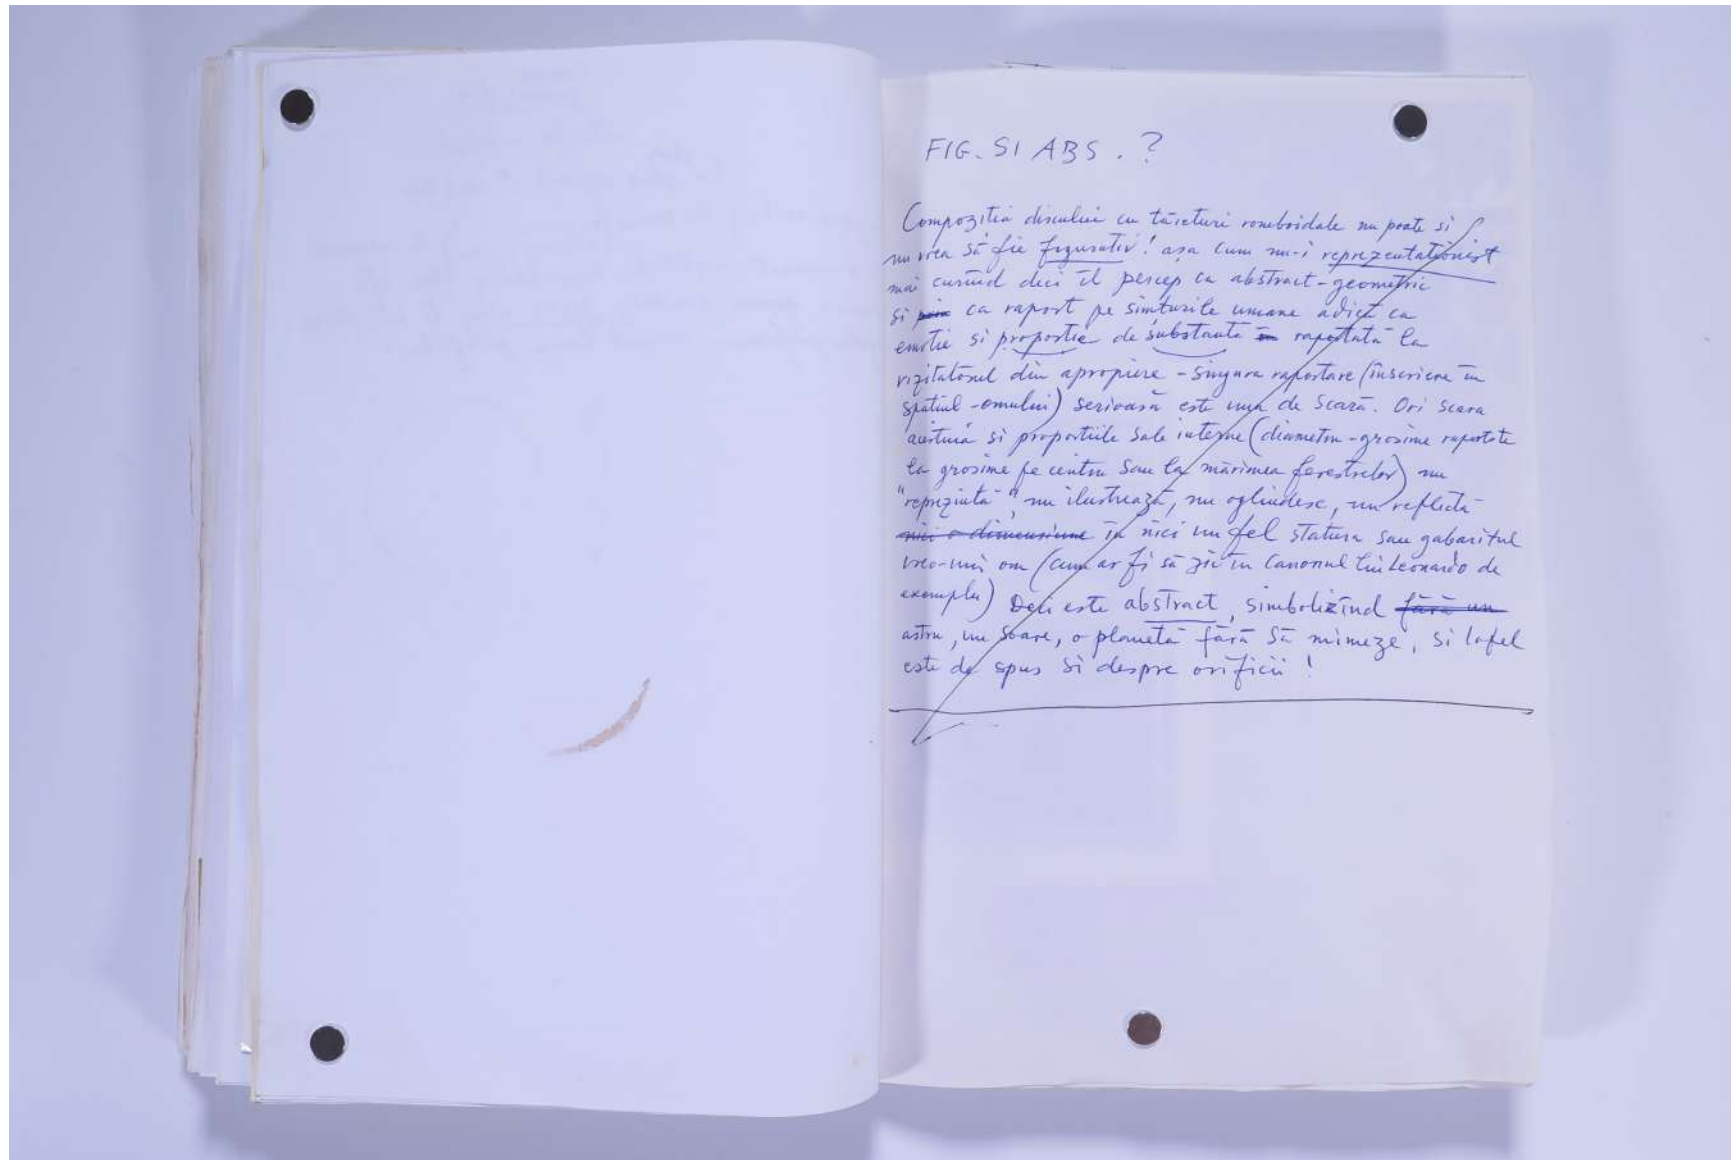 FIG. SI ABS. ?
Compoziția discului cu tăieturi romboidale nu poate si
nu vrea să fie figurativ! așa cum nu-i reprezentationist
mai curînd deci îl percep ca abstract-geometric
si prin ca raport pe simturile umane adică ca
emotie si proportie de substantă raportată la
vizitatorul din apropiere - singura raportare (inscriere in
spatiul - omului) serioasă este una de Scară. Ori scara
acestuia si proportiile Sale interne (diametru - grosime raportate
la grosime pe centru Sau la mărimea ferestrelor) nu
"reprezintă", nu ilustrează, nu oglindesc, nu reflectă
nici o dimensiune în nici un fel statura sau gabaritul
vreo-unui om (cum ar fi să zic in Canonul lui Leonardo de
exemplu) Deci este abstract, simbolizînd fără un
astru, un Soare, o planetă fără Să mimeze, si lafel
este de spus si despre orificii!